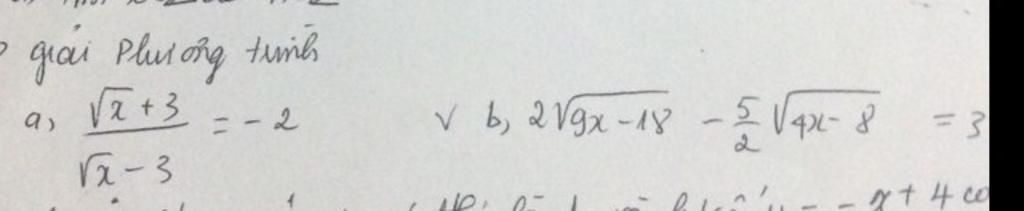 giải Phương trình
a, (√x + 3)/(√x - 3) = -2 √ b, 2√(9x-18) - 5/2 √(4x-8) = 3
x + 4